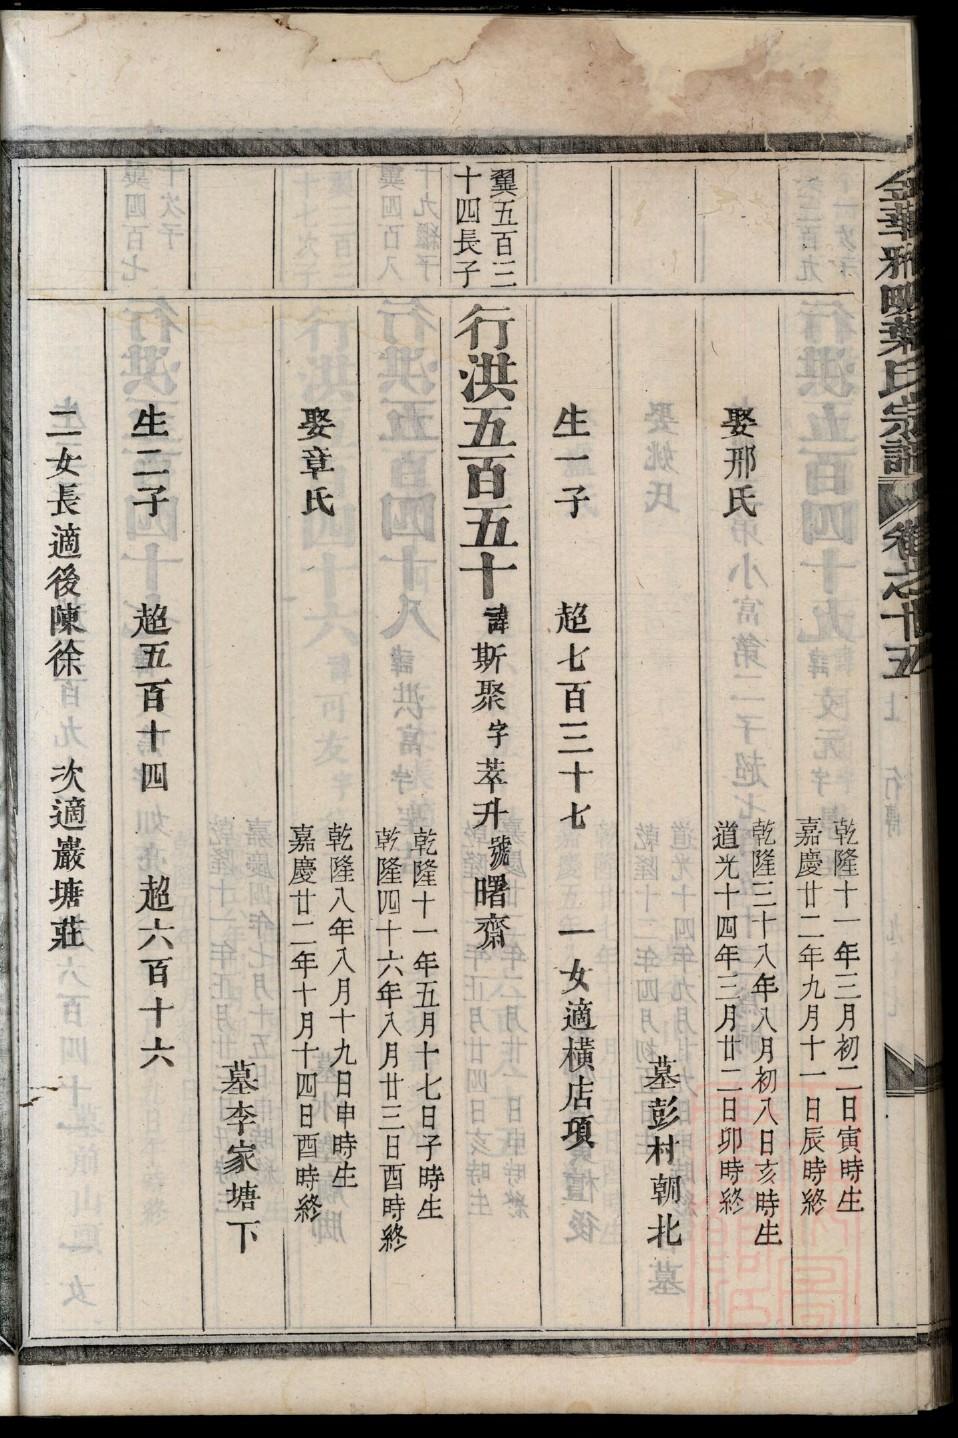 金華雅畈葉氏宗譜 卷之十五
乾隆十一年三月初二日寅時生
嘉慶廿二年九月十一日辰時終
娶邢氏
乾隆三十八年八月初八日亥時生
道光十四年三月廿二日卯時終
墓彭村朝北
生一子 超七百三十七 一女適橫店項
翼五百三
十四長子
行洪五百五十 諱斯聚 字萃升 號曙齋
乾隆十一年五月十七日子時生
乾隆四十六年八月廿三日酉時終
娶章氏
乾隆八年八月十九日申時生
嘉慶廿二年十月十四日酉時終
墓李家塘下
生二子 超五百十四 超六百十六
二女長適後陳徐 次適巖塘莊